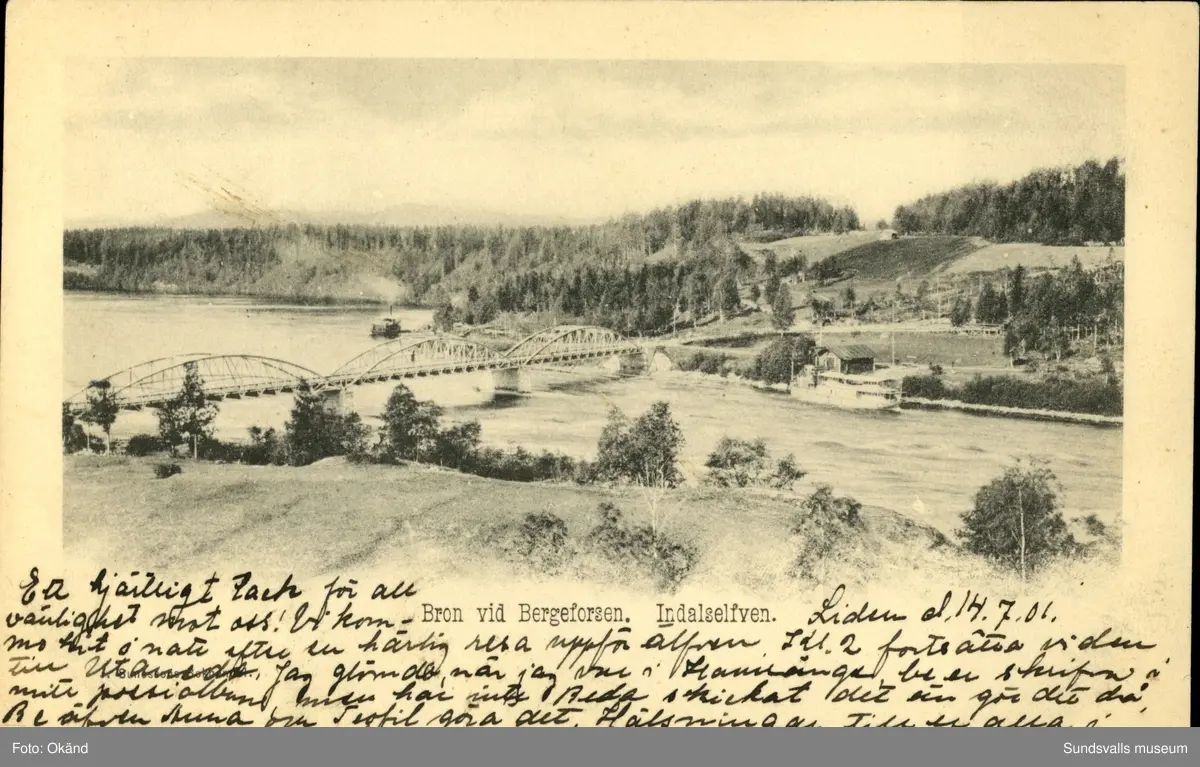 Ett hjärtligt Tack för all
vänlighet mot oss! Vi kom-
Bron vid Bergeforsen. Indalselfven.
Liden d. 14.7.01.
mo hit i natt efter en härlig resa uppför älfven. Kl. 2 fortsätta vi den
till Utanede. Jag glömde, när jag var i be er skrifva i
mitt possialbum, men har inte Beda skickat det än gör det då,
Be äfven Anna och Teofil göra det. Hälsningar till er alla i
Foto: Okänd
Sundsvalls museum